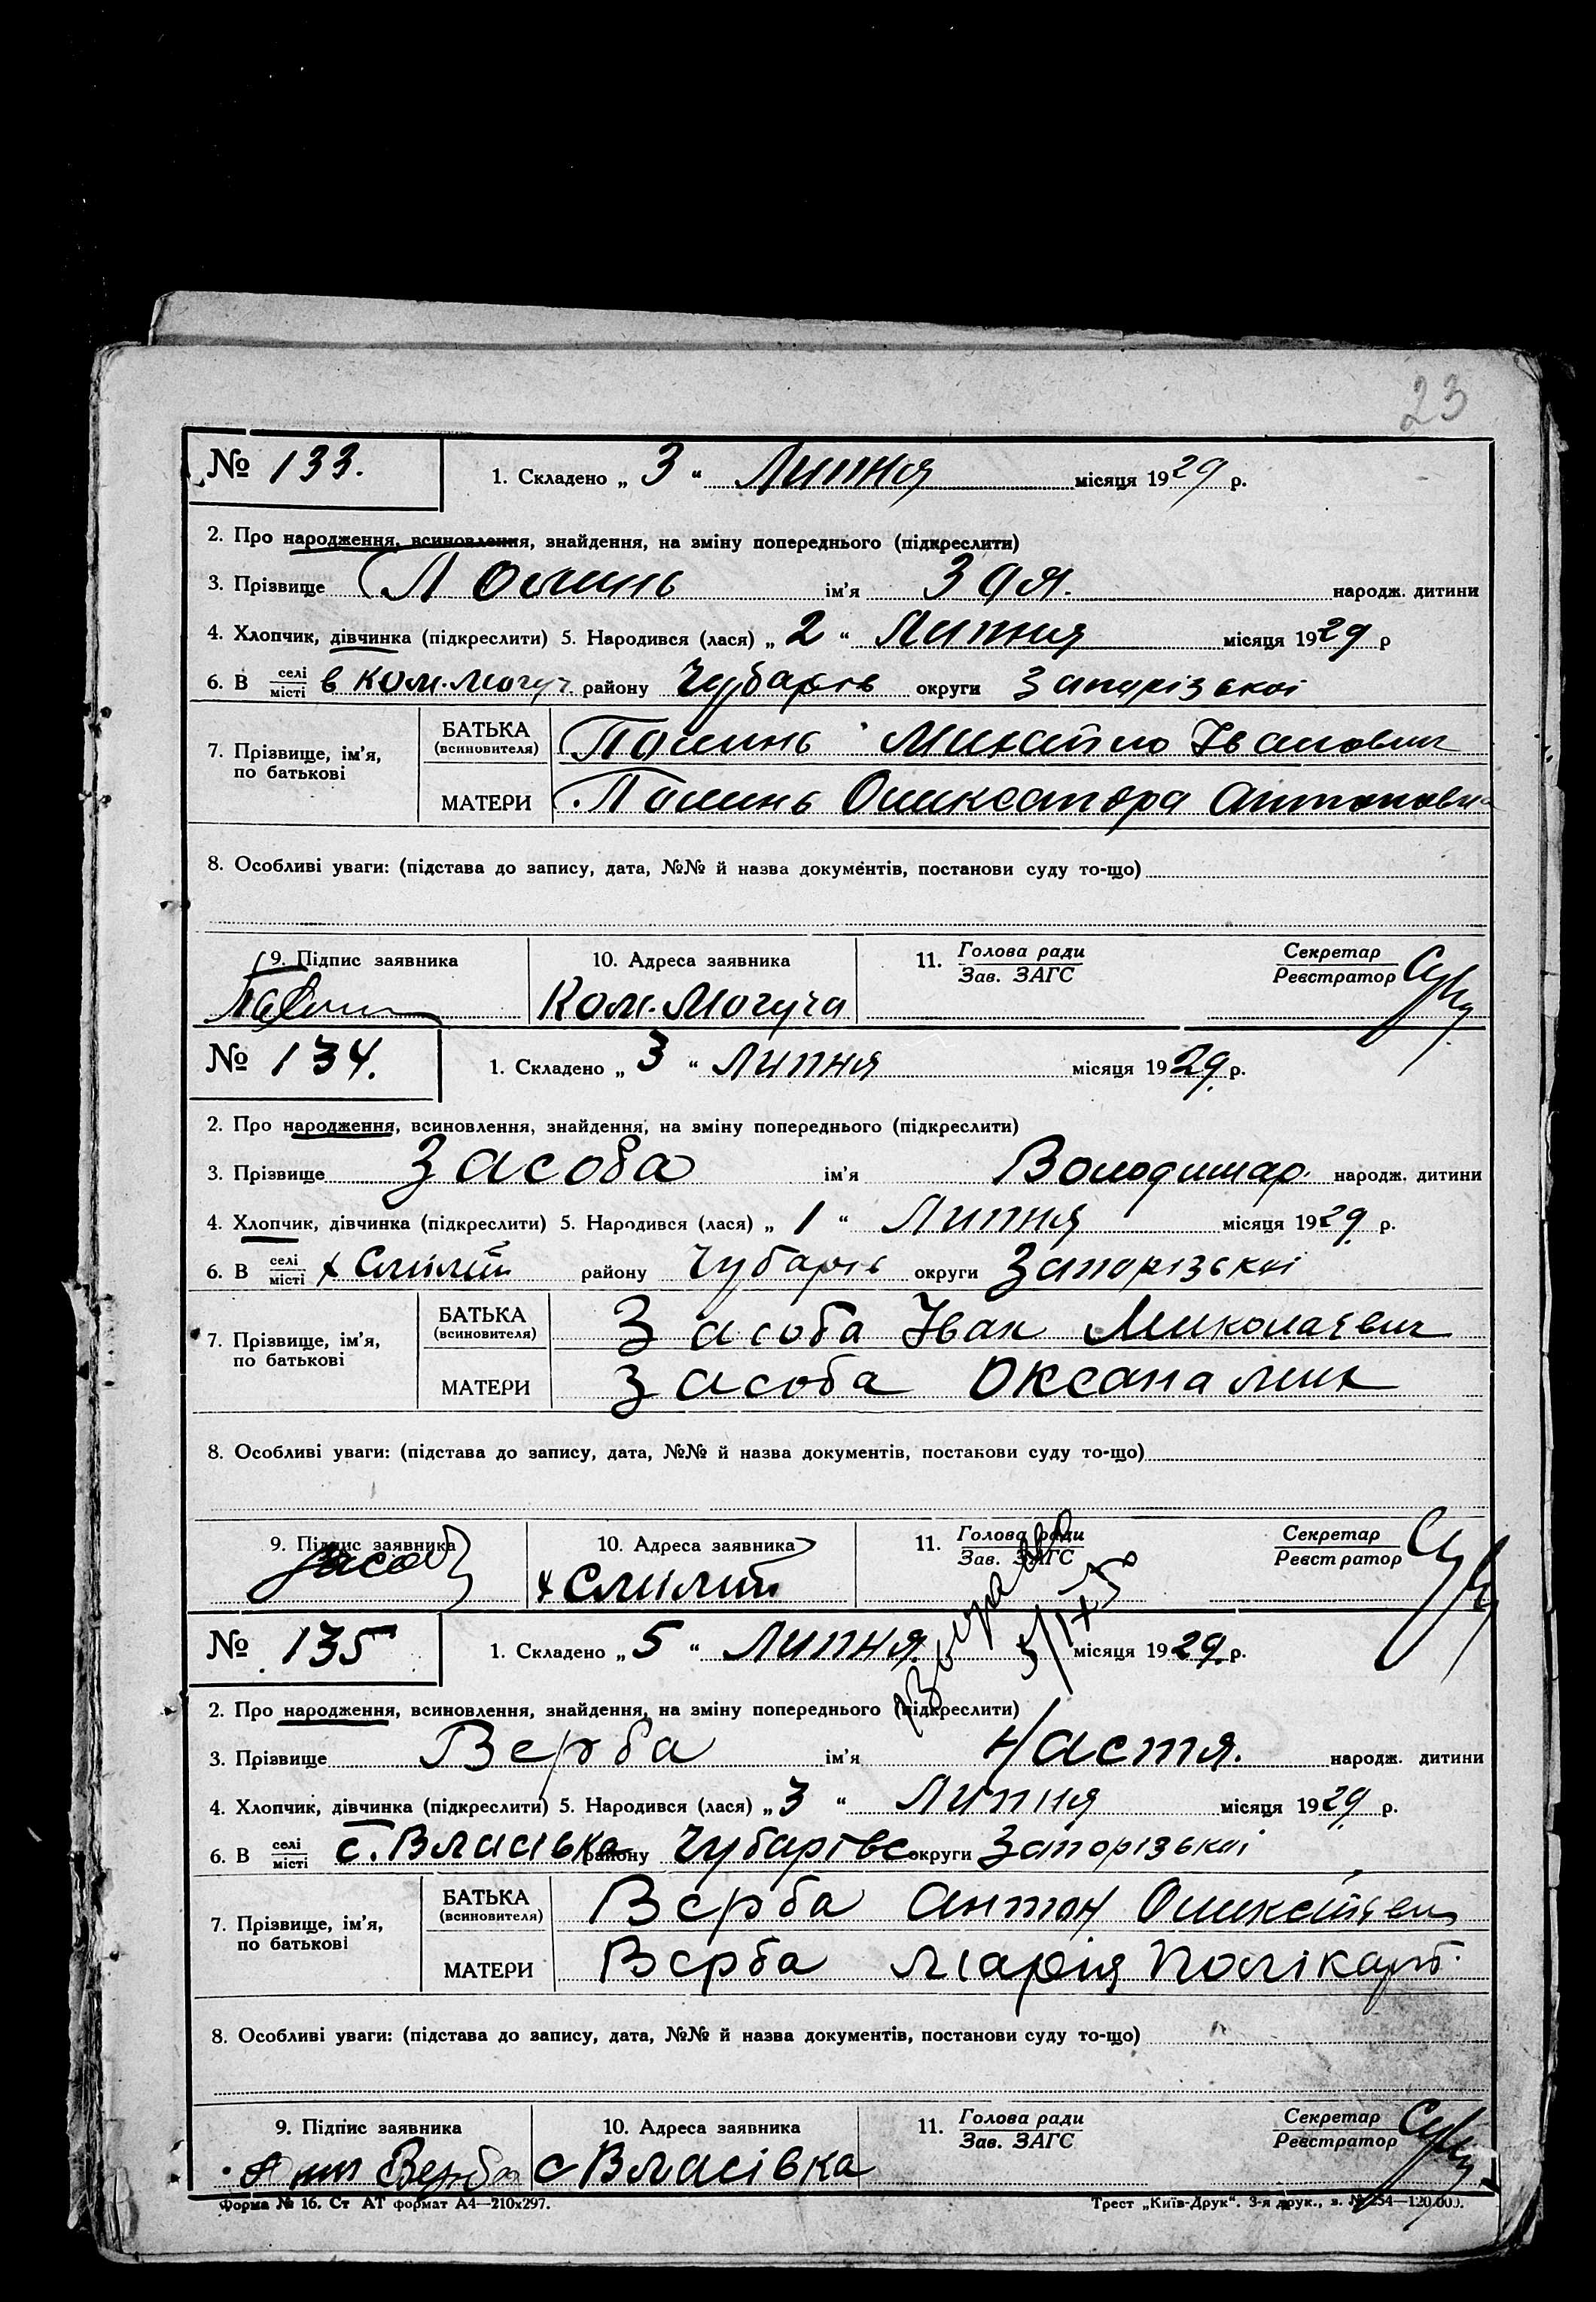 23
№ 133. 1. Складено „ 3 “ Липня місяця 1929 р.
2. Про народження, всиновлення, знайдення, на зміну попереднього (підкреслити)
3. Прізвище ім'я Зоя. народж. дитини
4. Хлопчик, дівчинка (підкреслити) 5. Народився (лася) „ 2 “ Липня місяця 1929 р
6. В селі місті в Ком. Могуч. району Чубарів округи Запорізької
7. Прізвище, ім'я, по батькові
БАТЬКА (всиновителя) Михайло Іванович
МАТЕРИ Олександра Антоновна
8. Особливі уваги: (підстава до запису, дата, №№ й назва документів, постанови суду то-що)
9. Підпис заявника 10. Адреса заявника 11. Голова ради Зав. ЗАГС Секретар Реєстратор
Ком. Могуча
№ 134. 1. Складено „ 3 “ Липня місяця 1929. р.
2. Про народження, всиновлення, знайдення, на зміну попереднього (підкреслити)
3. Прізвище Засоба ім'я Володимар. народж. дитини
4. Хлопчик, дівчинка (підкреслити) 5. Народився (лася) „ 1 “ Липня місяця 1929. р.
6. В селі місті х району Чубарів округи Запорізької
7. Прізвище, ім'я, по батькові
БАТЬКА (всиновителя) Засоба Іван Миколаєвич
МАТЕРИ Засоба Оксана
8. Особливі уваги: (підстава до запису, дата, №№ й назва документів, постанови суду то-що)
9. Підпис заявника 10. Адреса заявника 11. Голова ради Зав. ЗАГС Секретар Реєстратор
Засоб х
№ 135 1. Складено „ 5 “ Липня. місяця 1929. р.
2. Про народження, всиновлення, знайдення, на зміну попереднього (підкреслити)
3. Прізвище Верба ім'я Настя. народж. дитини
4. Хлопчик, дівчинка (підкреслити) 5. Народився (лася) „ 3 “ Липня місяця 1929. р.
6. В селі місті с. Власівка району Чубарівс округи Запорізької
7. Прізвище, ім'я, по батькові
БАТЬКА (всиновителя) Верба Антон Оликсейевич
МАТЕРИ Верба Марія Полікарп.
8. Особливі уваги: (підстава до запису, дата, №№ й назва документів, постанови суду то-що)
9. Підпис заявника 10. Адреса заявника 11. Голова ради Зав. ЗАГС Секретар Реєстратор
Верба с Власівка
Форма № 16. Ст АТ формат А4—210х297. Трест „Київ-Друк“. 3-я друк., з. № 254—120.000.